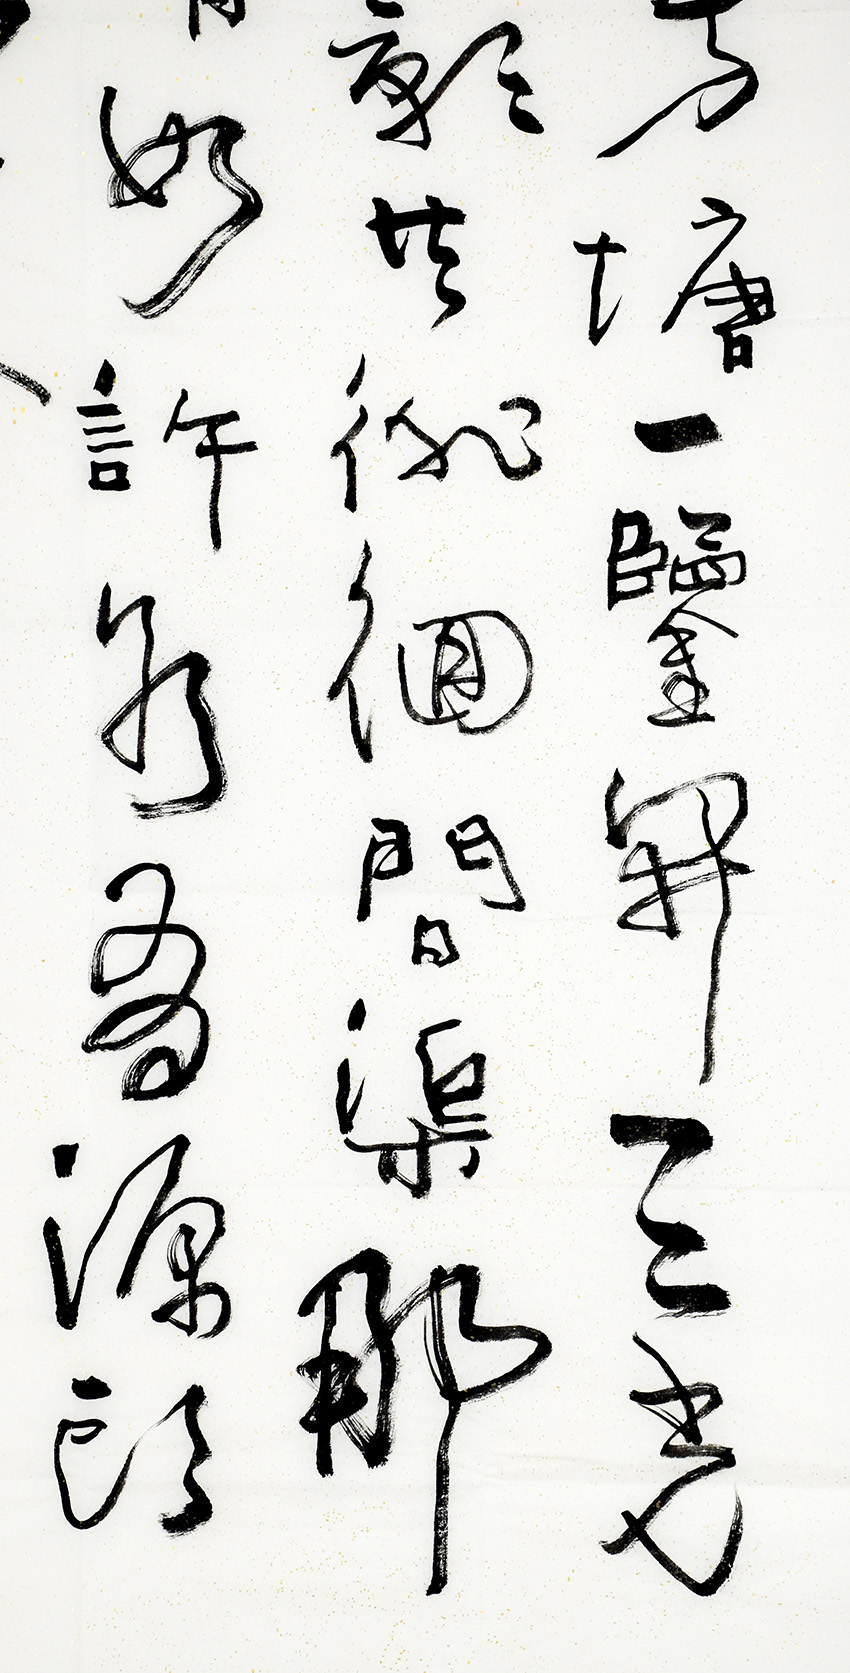 方塘一鑒開天光
影共徘徊問渠那
如許為有源頭